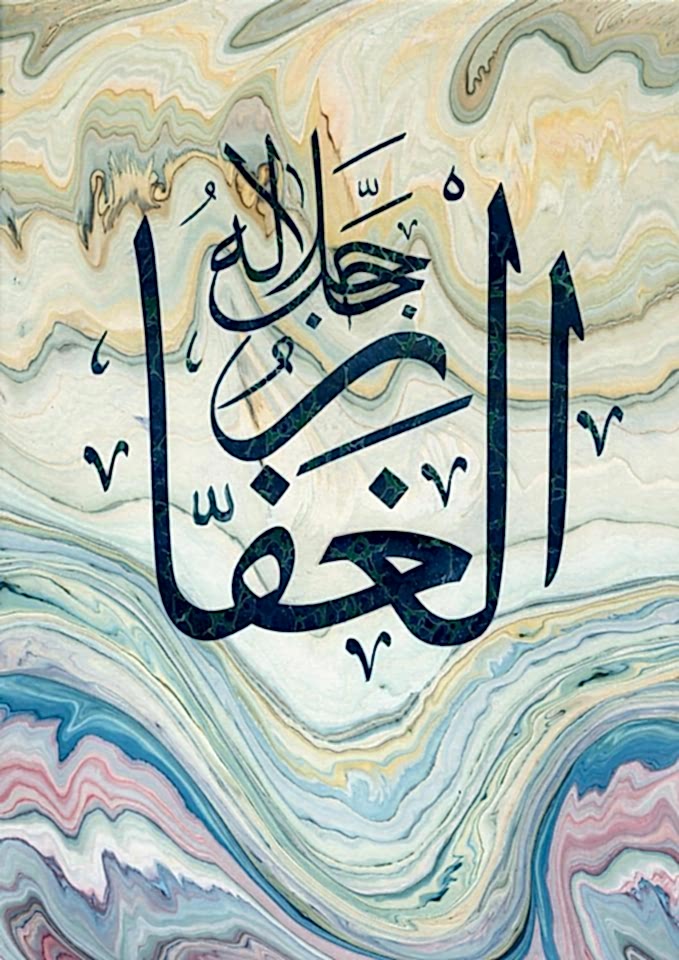 الغفّار
جلّ جلاله